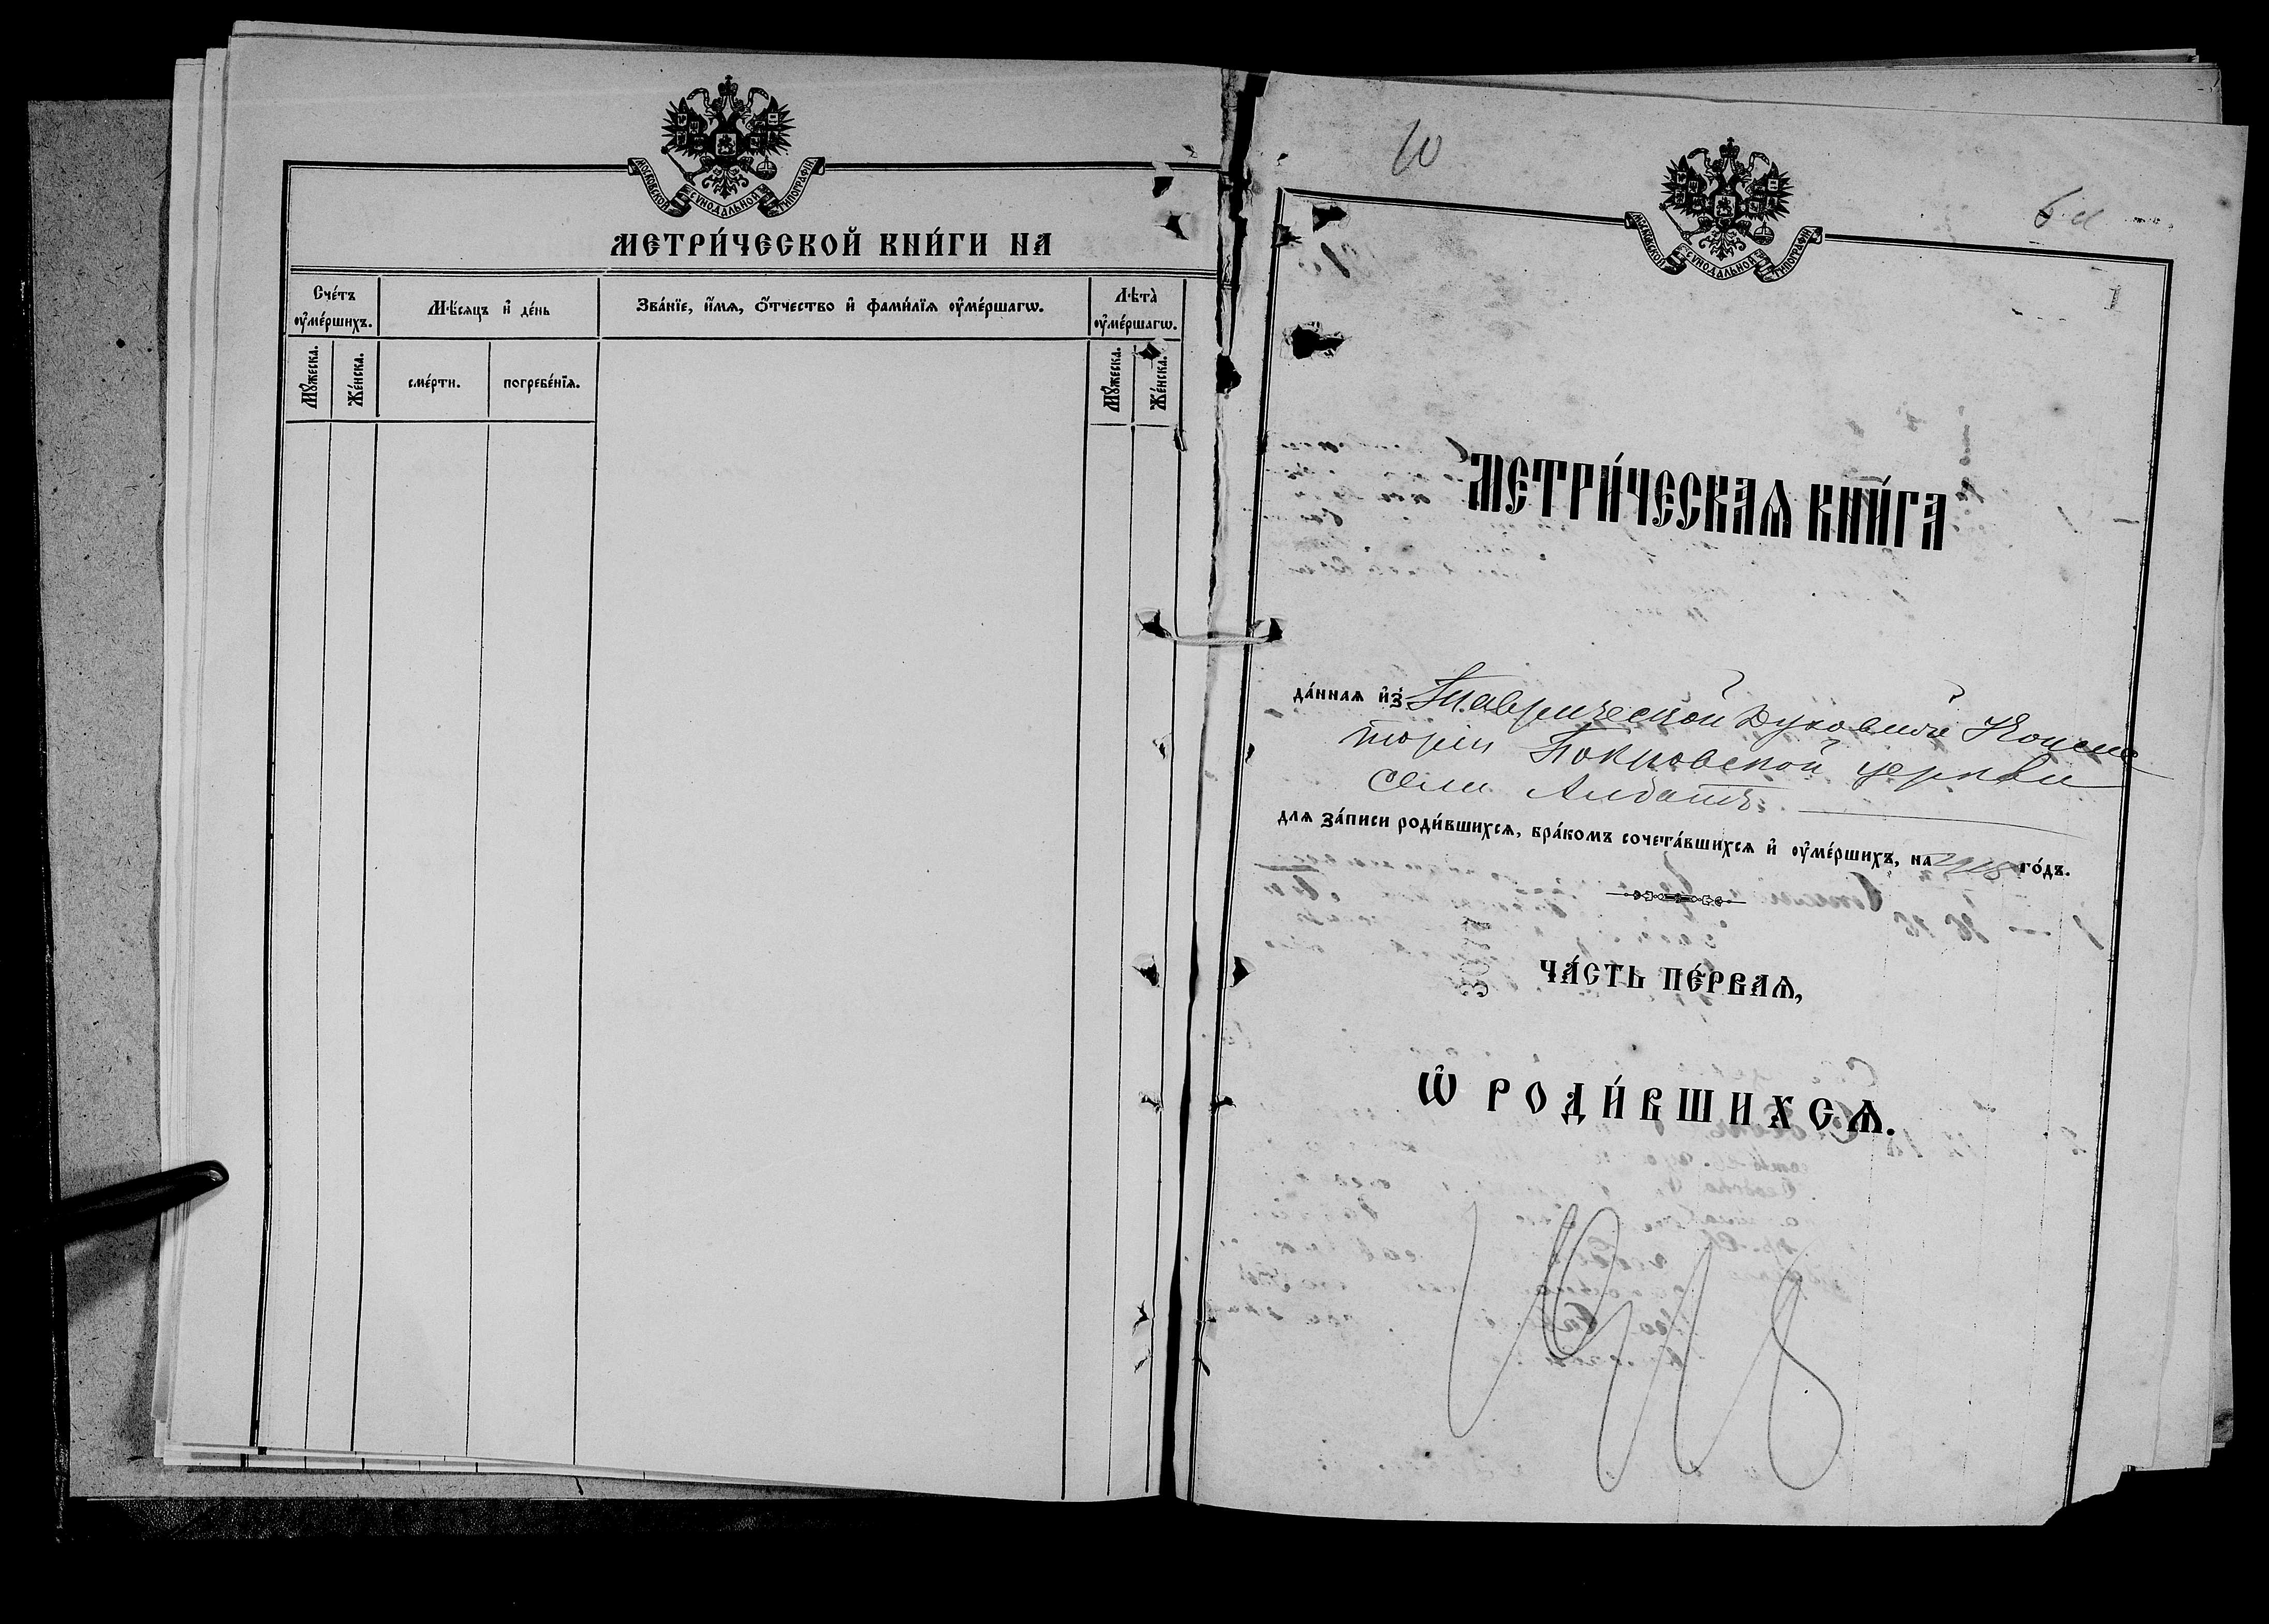 МОСКОВСКОЙ СѴНОДАЛЬНОЙ ТИПОГРАФІИ
МЕТРИ́ЧЕСКОЙ КНИ́ГИ НА
Сче́тъ ᲂу҆ме́ршихъ.
Мѣ́сяцъ и҆ де́нь
Зва́нїе, и҆́мѧ, ѻ҆́тчество и҆ фами́лїѧ ᲂу҆ме́ршагѡ.
Лѣта̀ ᲂу҆ме́ршагѡ.
Мꙋ́жеска.
Же́нска.
сме́рти.
погребе́нїѧ.
Мꙋ́жеска.
Же́нска.
10
МОСКОВСКОЙ СѴНОДАЛЬНОЙ ТИПОГРАФІИ
1
МЕТРИ́ЧЕСКАѦ КНИ́ГА
да́ннаѧ и҆з̾ Таврической Духовной Консис
торіи Покровской церкви
села Албатъ
длѧ за́писи роди́вшихсѧ, бра́комъ сочета́вшихсѧ и҆ ᲂу҆ме́ршихъ, на 1918 го́дъ.
ЧА́СТЬ ПЕ́РВАѦ,
Ѡ҆ РОДИ́ВШИХСѦ.
1918